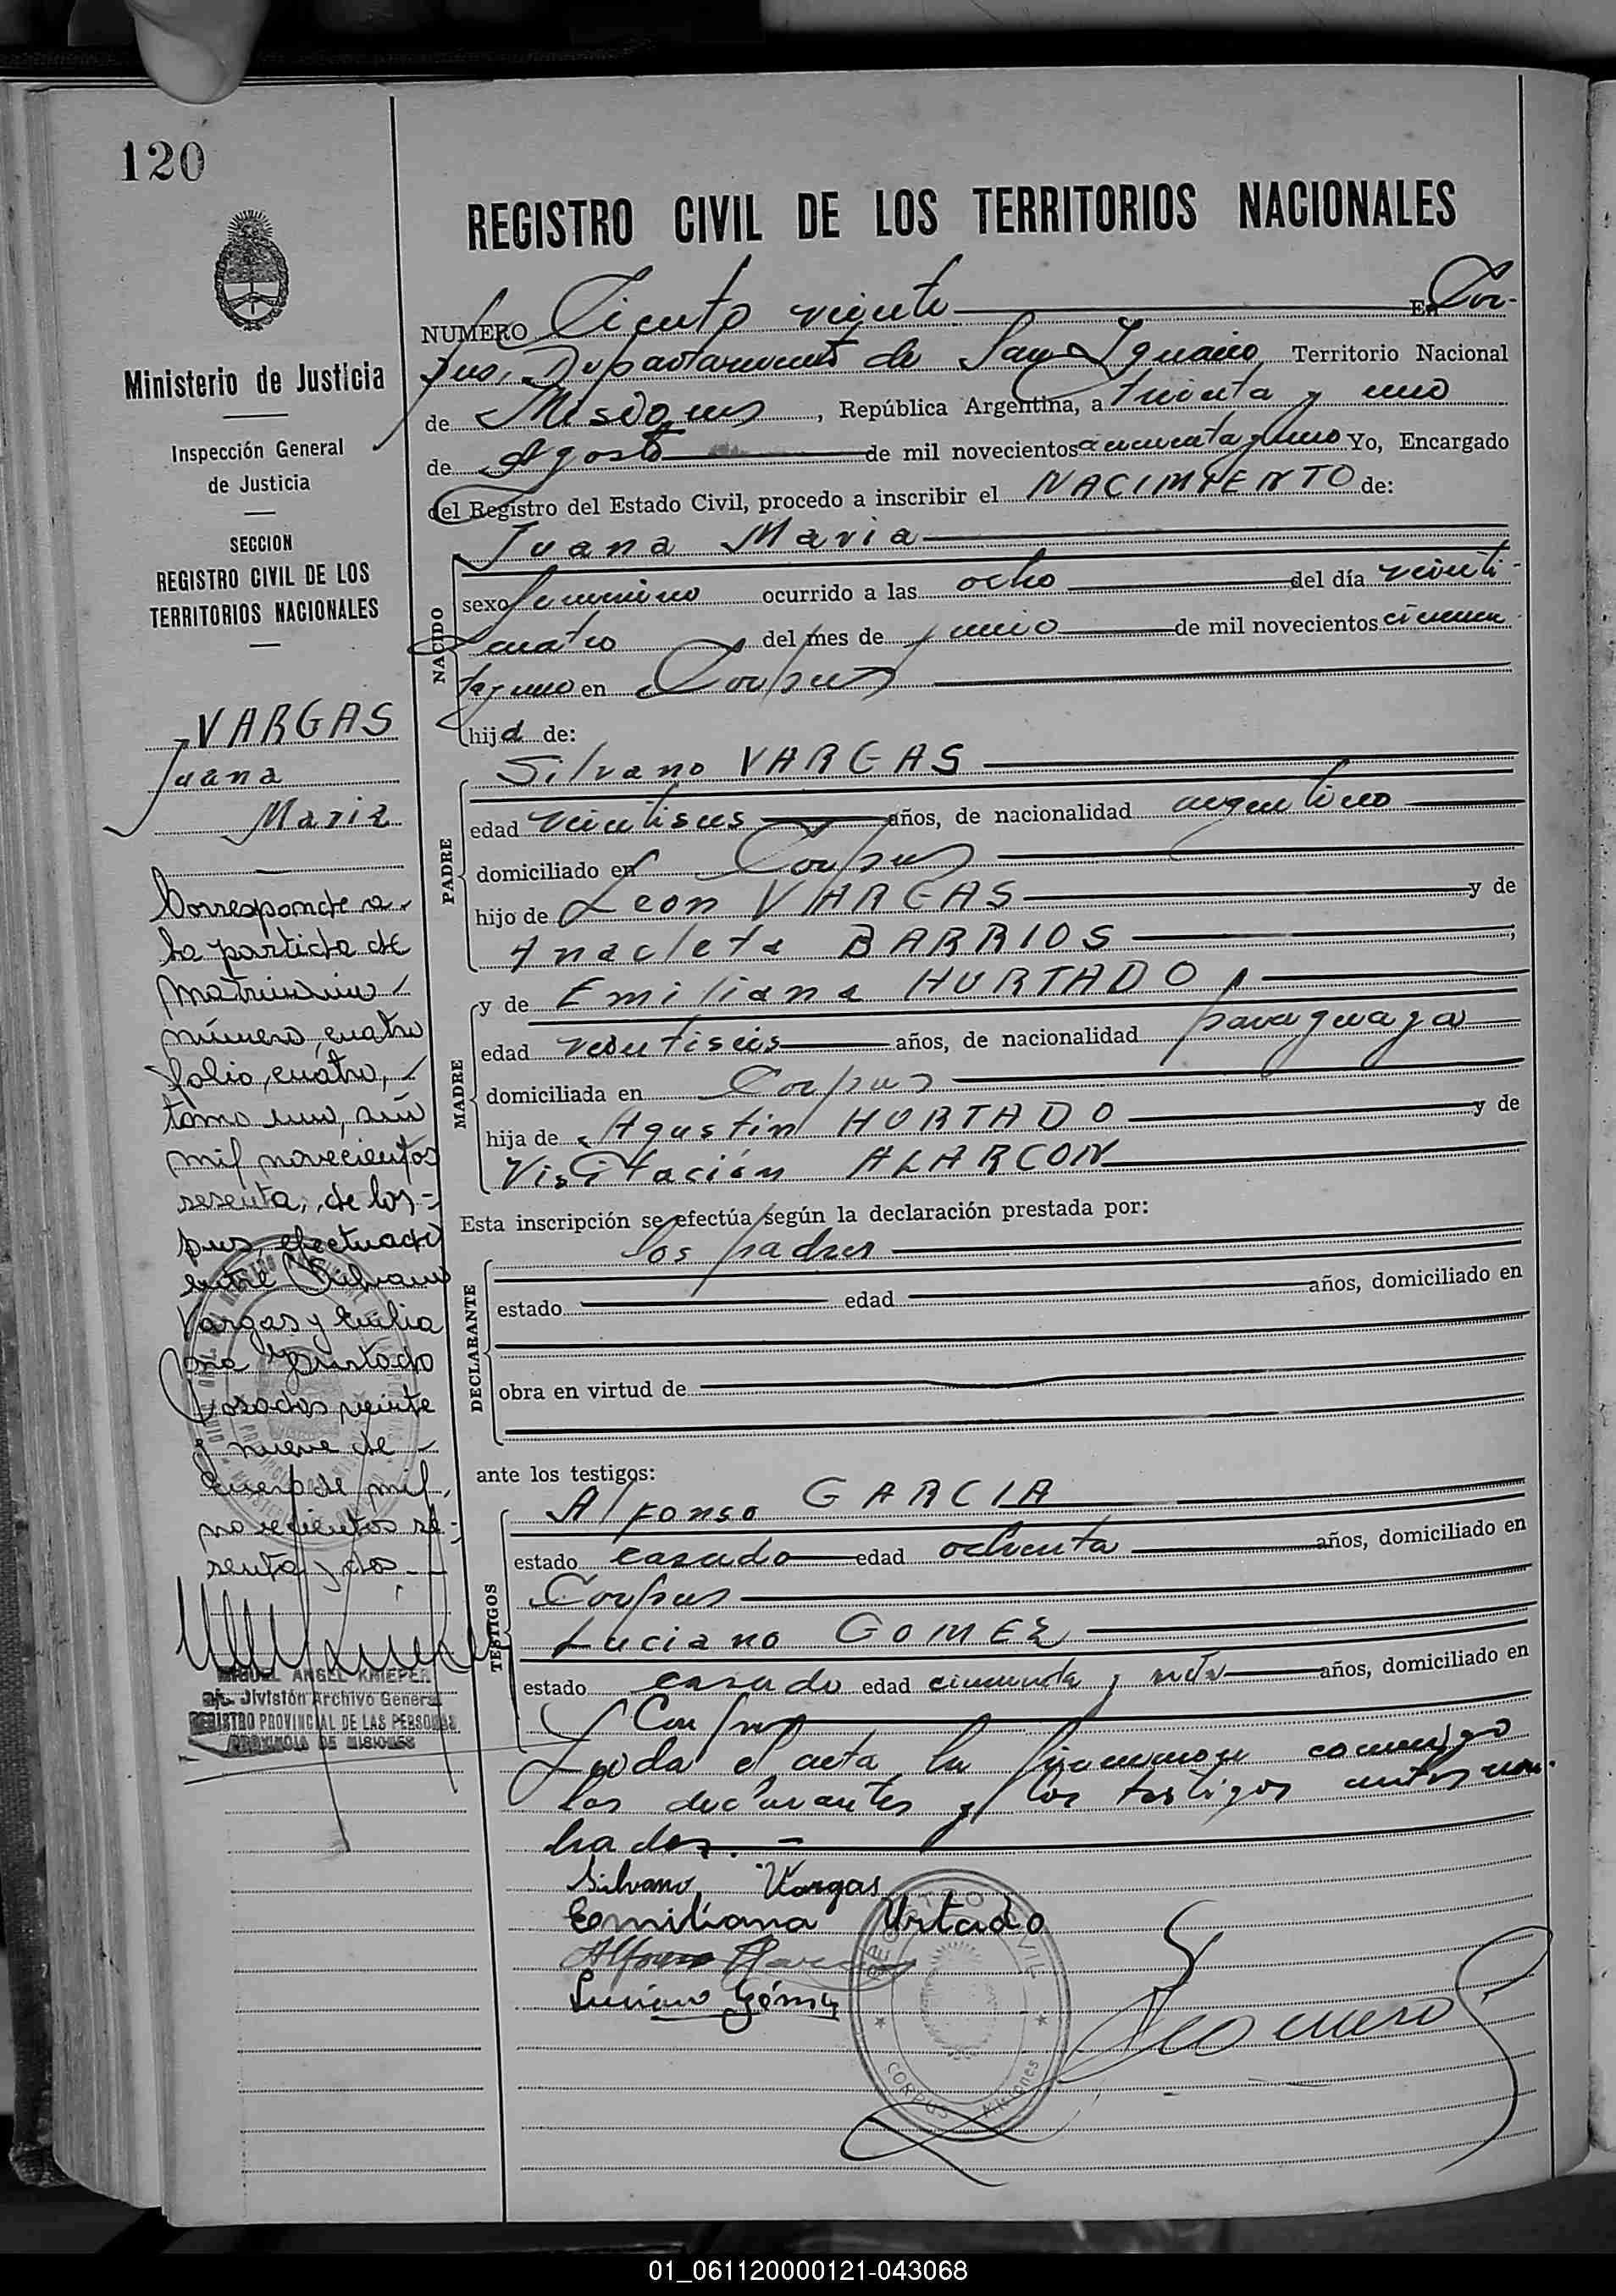 120
Ministerio de Justicia
Inspección General
de Justicia
SECCION
REGISTRO CIVIL DE LOS
TERRITORIOS NACIONALES
VARGAS
Juana
Maria
Corresponde a
la partida de
matrimonio
número, cuatro
folio, cuatro,
tomo uno, año
mil novecientos
sesenta, de Cor-
pus, efectuado
entre Silvano
Vargas y Emilia
na Hurtado
Posadas veinte
y nueve de
Enero de mil
novecientos se-
senta y dos
MIGUEL ANGEL KNIEPER
División Archivo General
REGISTRO PROVINCIAL DE LAS PERSONAS
PROVINCIA DE MISIONES
REGISTRO CIVIL DE LOS TERRITORIOS NACIONALES
NUMERO Ciento veinte En Cor-
pus, Departamento de San Ignacio Territorio Nacional
de Misiones, República Argentina, a treinta y uno
de Agosto de mil novecientos cincuenta y uno Yo, Encargado
del Registro del Estado Civil, procedo a inscribir el NACIMIENTO de:
Juana Maria
NACIDO
sexo femenino ocurrido a las ocho del día veinti-
cuatro del mes de junio de mil novecientos cincuen
ta y uno en Corpus
hija de:
PADRE
Silvano VARGAS
edad veintiseis años, de nacionalidad argentino
domiciliado en Corpus
hijo de Leon VARGAS y de
Anacleta BARRIOS;
MADRE
y de Emiliana HURTADO
edad veintiseis años, de nacionalidad paraguaya
domiciliada en Corpus
hija de Agustin HURTADO y de
Visitación ALARCON
Esta inscripción se efectúa según la declaración prestada por:
DECLARANTE
los padres
estado edad años, domiciliado en
obra en virtud de
ante los testigos:
TESTIGOS
Alfonso GARCIA
estado casado edad ochenta años, domiciliado en
Corpus
Luciano GOMEZ
estado casado edad cincuenta y años, domiciliado en
Corpus
Leida el acta, la firman conmigo
los declarantes y los testigos antes nom-
brados.-
Silvano Vargas
Emiliana Urtado
Alfonso Garcia
Luciano Gómez
REGISTRO CIVIL
CORPUS Misiones
01_061120000121-043068